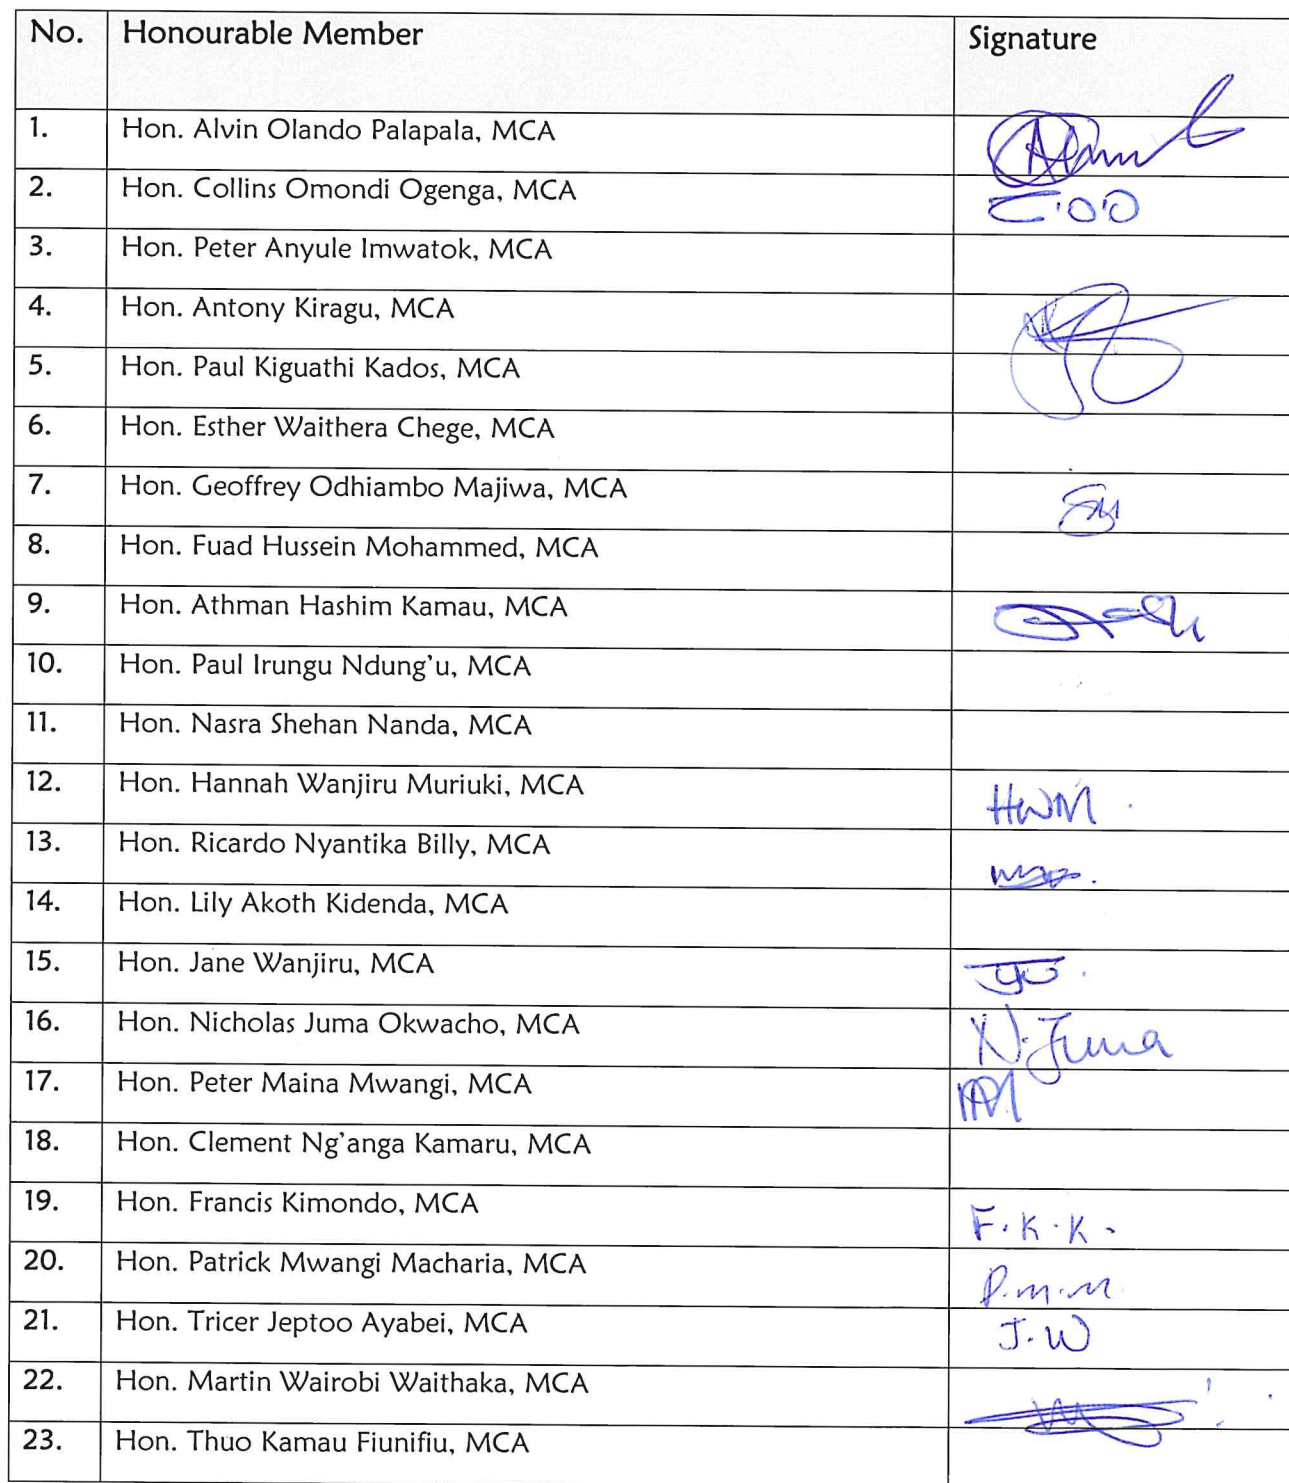 No. Honourable Member Signature
1. Hon. Alvin Olando Palapala, MCA
2. Hon. Collins Omondi Ogenga, MCA C.O.O
3. Hon. Peter Anyule Imwatok, MCA
4. Hon. Antony Kiragu, MCA
5. Hon. Paul Kiguathi Kados, MCA
6. Hon. Esther Waithera Chege, MCA
7. Hon. Geoffrey Odhiambo Majiwa, MCA
8. Hon. Fuad Hussein Mohammed, MCA
9. Hon. Athman Hashim Kamau, MCA
10. Hon. Paul Irungu Ndung'u, MCA
11. Hon. Nasra Shehan Nanda, MCA
12. Hon. Hannah Wanjiru Muriuki, MCA HWM.
13. Hon. Ricardo Nyantika Billy, MCA
14. Hon. Lily Akoth Kidenda, MCA
15. Hon. Jane Wanjiru, MCA
16. Hon. Nicholas Juma Okwacho, MCA N. Juma
17. Hon. Peter Maina Mwangi, MCA
18. Hon. Clement Ng'anga Kamaru, MCA
19. Hon. Francis Kimondo, MCA F.K.K.
20. Hon. Patrick Mwangi Macharia, MCA P.m.m.
21. Hon. Tricer Jeptoo Ayabei, MCA J.W
22. Hon. Martin Wairobi Waithaka, MCA
23. Hon. Thuo Kamau Fiunifiu, MCA